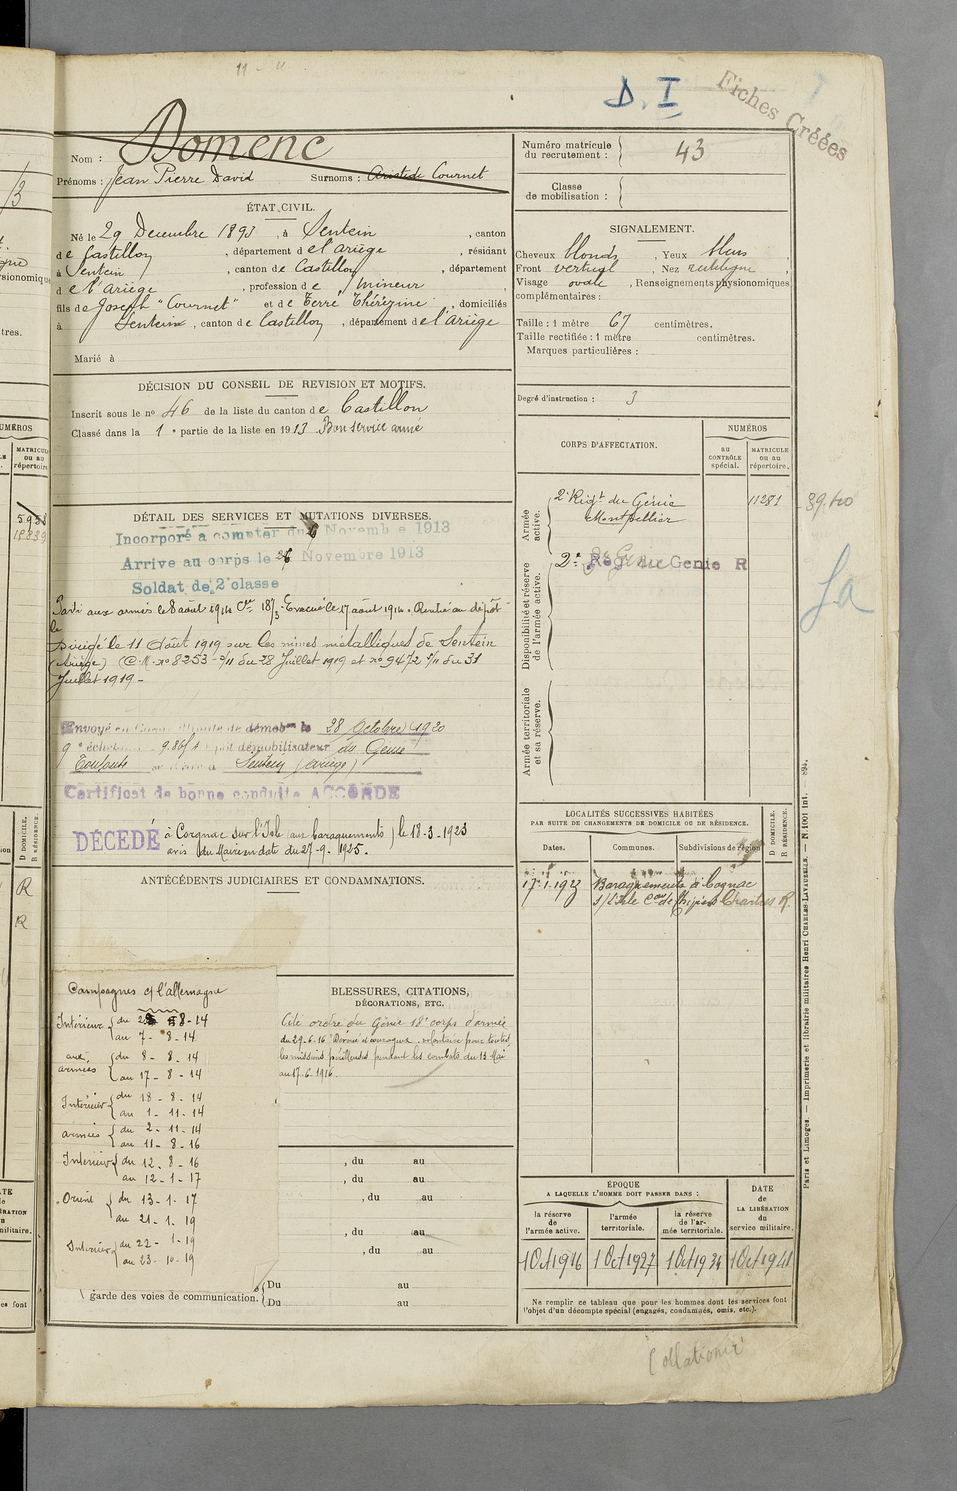 D. I
Fiches Créées
Nom : Domenc
Prénoms : Jean Pierre David Surnoms : Aristide Cournet
Numéro matricule du recrutement : 43
Classe de mobilisation :
ÉTAT CIVIL.
Né le 29 Decembre 1893, à Sentein, canton
de Castillon, département de l'ariège, résidant
à Sentein, canton de Castillon, département
de l'ariège, profession de mineur
fils de Joseph "Cournet" et de Terré Thérézine, domiciliés
à Sentein, canton de Castillon, département de l'ariège
Marié à
SIGNALEMENT.
Cheveux blonds, Yeux bleus,
Front vertical, Nez rectiligne,
Visage ovale, Renseignements physionomiques
complémentaires :
Taille : 1 mètre 67 centimètres.
Taille rectifiée : 1 mètre centimètres.
Marques particulières :
Degré d'instruction : 3
DÉCISION DU CONSEIL DE REVISION ET MOTIFS.
Inscrit sous le no 46 de la liste du canton de Castillon
Classé dans la 1e partie de la liste en 1913. Bon service armé
DÉTAIL DES SERVICES ET MUTATIONS DIVERSES.
Incorporé à compter du 26 Novembre 1913
Arrive au corps le 26 Novembre 1913
Soldat de 2e classe
Parti aux armées le 8 août 1914 Cie 18/3. Evacué le 17 août 1914. Rentré au dépôt
le
Dirigé le 11 Août 1919 sur les mines métalliques de Sentein
(Ariège) (C.M. no 8253-5/11 du 28 Juillet 1919 et no 9472 5/11 du 31
Juillet 1919 -
Envoyé en de démobon le 28 Octobre 1920
9e échelon démobilisateur du Génie
Toulouse Sentein (ariège)
Certificat de bonne conduite ACCORDÉ
DÉCÉDÉ à Corgnac sur l'Isle (aux baraquements) le 18-3-1923
avis du Maire en date du 27-9-1925.
ANTÉCÉDENTS JUDICIAIRES ET CONDAMNATIONS.
Campagnes c/ l'allemagne
Intérieur du 8-14
au 7-8-14
aux armées du 8-8-14
au 17-8-14
Intérieur du 18-8-14
au 1-11-14
armées du 2-11-14
au 11-8-16
Intérieur du 12.8-16
au 12-1-17
Orient du 13-1-17
au 21-1.19
Intérieur du 22-1-19
au 23-10-19
BLESSURES, CITATIONS,
DÉCORATIONS, ETC.
Cité ordre du Génie 18e corps d'armée
du 29-6-16 Dévoué et courageux. volontaire pour toutes
les missions périlleuses pendant les combats du 13 Mai
au 17-6-1916.
, du au
, du au
, du au
, du au
, du au
garde des voies de communication. Du au
Du au
CORPS D'AFFECTATION.
NUMÉROS
AU CONTRÔLE spécial.
MATRICULE OU AU répertoire.
Armée active.
2e Régt du Génie
Montpellier
11281
Disponibilité et réserve de l'armée active.
2e Rég. du Genie R
Armée territoriale et sa réserve.
LOCALITÉS SUCCESSIVES HABITÉES
PAR SUITE DE CHANGEMENTS DE DOMICILE OU DE RÉSIDENCE.
Dates.
Communes.
Subdivisions de région
D DOMICILE.
R RÉSIDENCE.
17.1.1923 Baraquements à Cognac
s/ L'Isle R
ÉPOQUE
A LAQUELLE L'HOMME DOIT PASSER DANS :
DATE de LA LIBÉRATION du service militaire.
la réserve de l'armée active.
l'armée territoriale.
la réserve de l'armée territoriale.
1 Oct 1916
1 Oct 1927
1 Oct 1934
1 Oct 1941
Ne remplir ce tableau que pour les hommes dont les services font
l'objet d'un décompte spécial (engagés, condamnés, omis, etc.).
Paris et Limoges. — Imprimerie et librairie militaires Henri CHARLES-LAVAUZELLE.